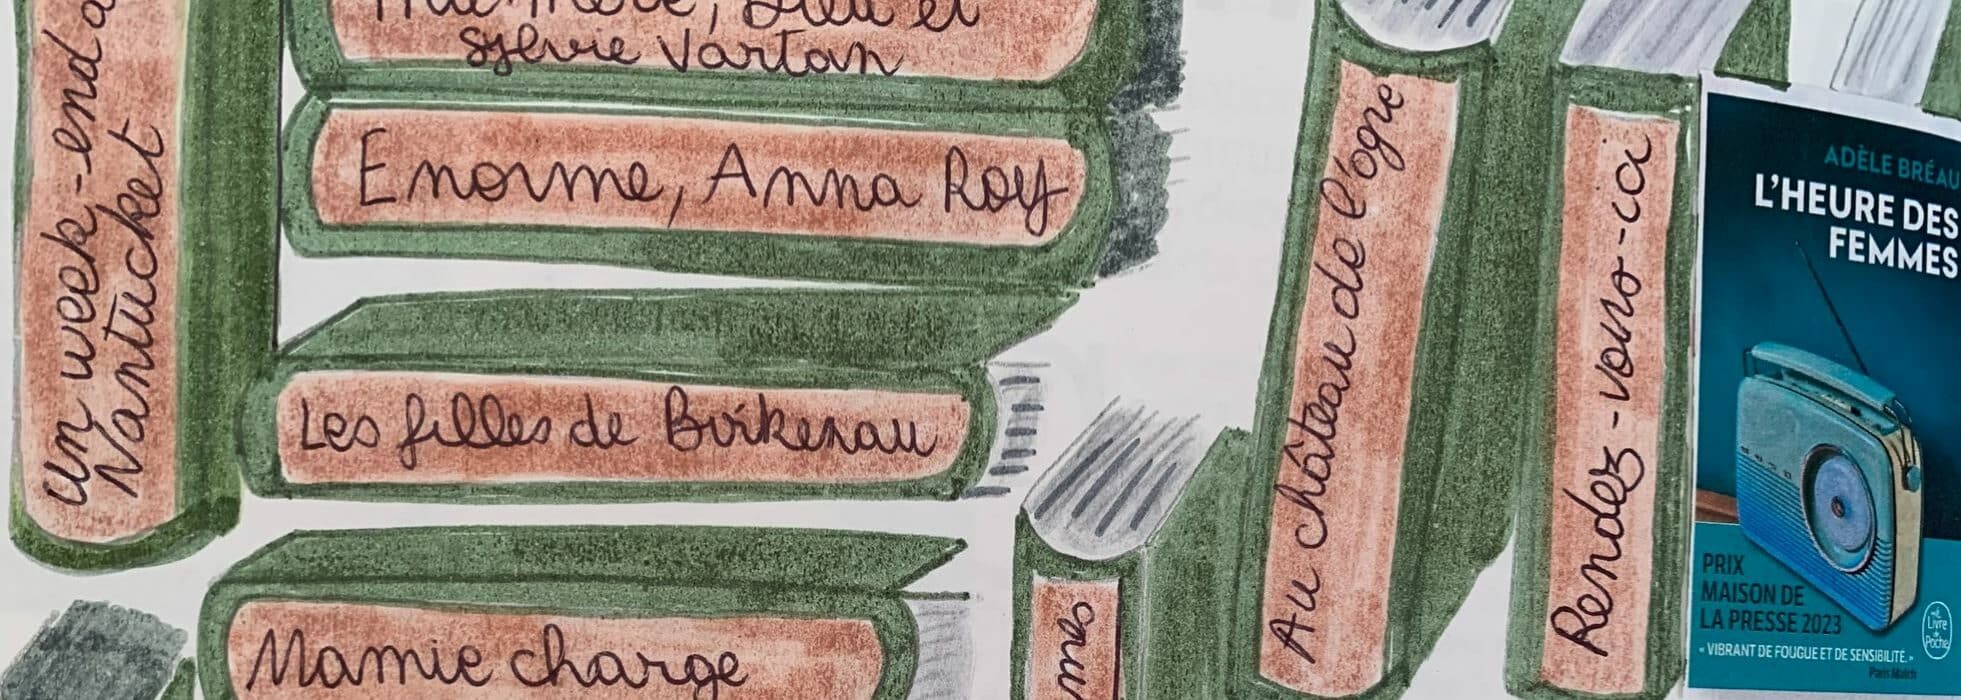 un week-end à
Nantucket
mère, Dieu et
Sylvie Vartan
Enorme, Anna Roy
Les filles de Birkenau
Mamie charge
Au château de l'ogre
Rendez-vous-ici
ADÈLE BRÉAU
L'HEURE DES
FEMMES
PRIX
MAISON DE
LA PRESSE 2023
« VIBRANT DE FOUGUE ET DE SENSIBILITÉ. »
Paris Match
Le
Livre
de
Poche